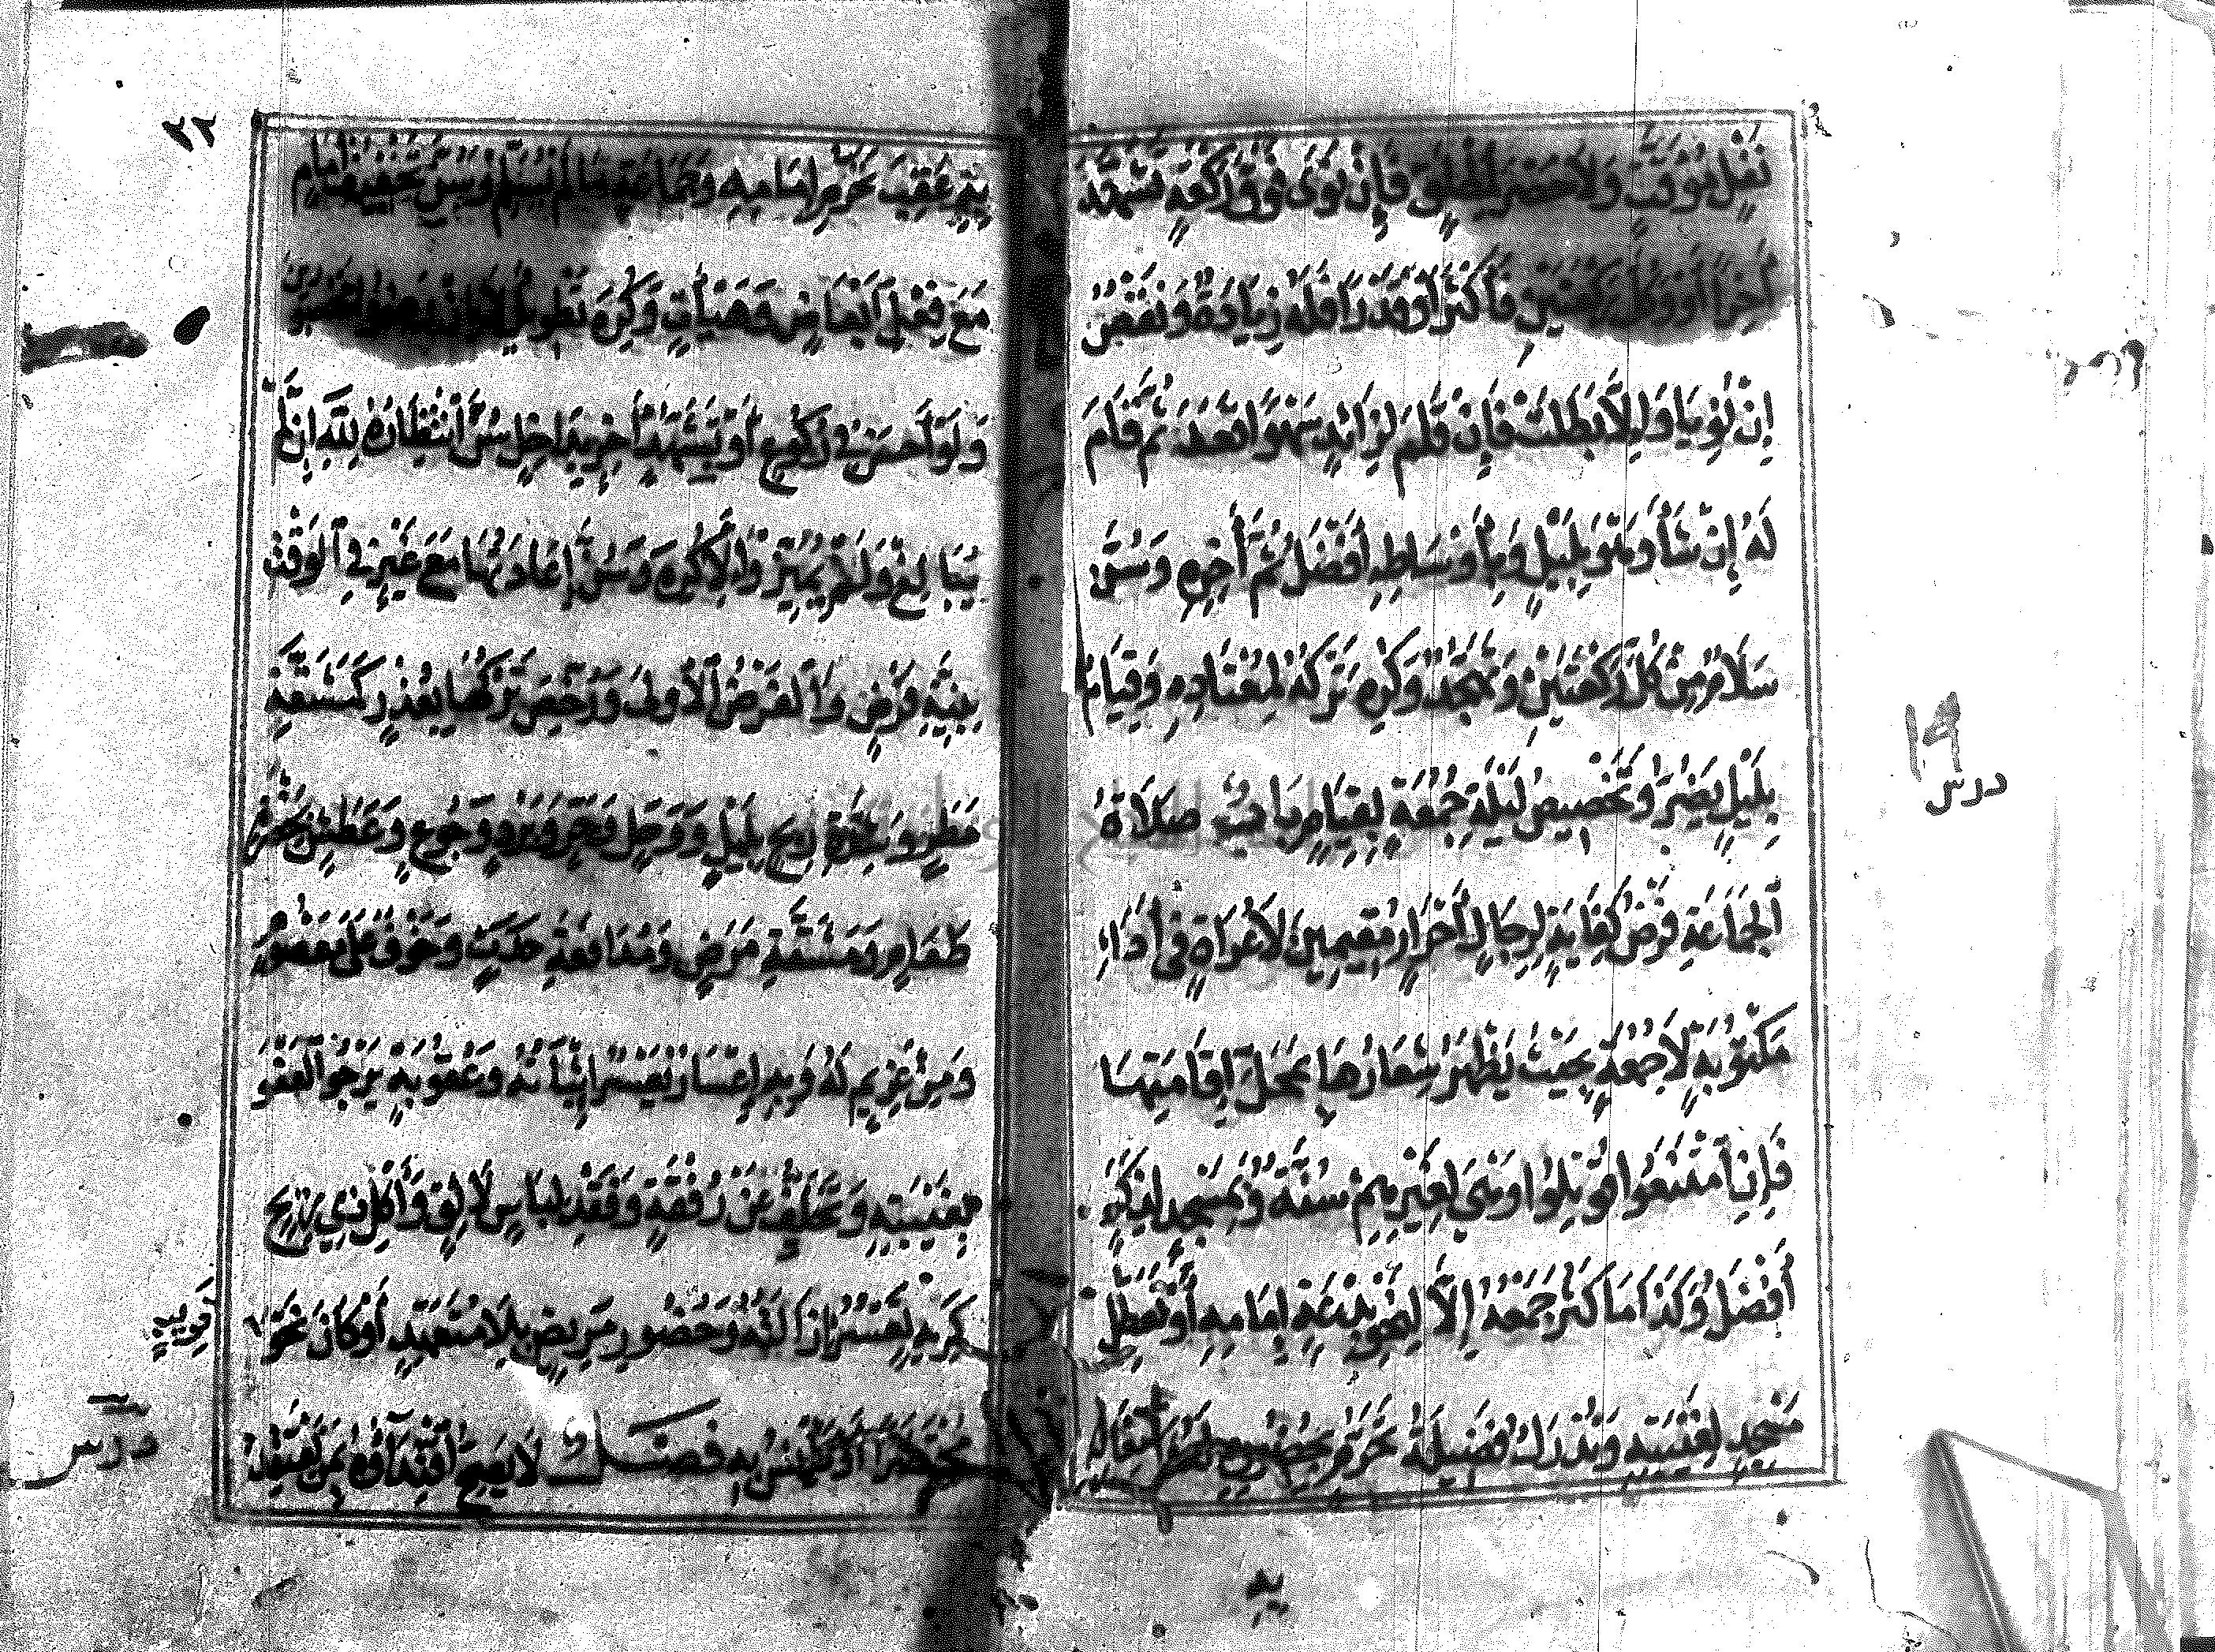 نَفْلٍ يُوَقَّتُ وَلَا حَصْرَ لِمُطْلَقٍ فَإِنْ نَوَى فَوْقَ رَكْعَةٍ تَشَهَّدَ
آخِرًا أَوْ وَكُلَّ رَكْعَتَيْنِ فَأَكْثَرَ أَوْ قَدْرًا فَلَهُ زِيَادَةٌ وَنَقْصٌ
إِنْ نُوِيَا وَإِلَّا بَطَلَتْ فَإِنْ قَامَ لِزَائِدٍ سَهْوًا قَعَدَ ثُمَّ قَامَ
لَهُ إِنْ شَاءَ وَهُوَ بِلَيْلٍ وَبِأَوْسَاطِهِ أَفْضَلُ ثُمَّ آخِرِهِ وَسُنَّ
سَلَامٌ مِنْ كُلِّ رَكْعَتَيْنِ وَتَهَجُّدٌ وَكُرِهَ تَرْكُهُ لِمُعْتَادِهِ وَقِيَامٌ
بِلَيْلٍ يَضُرُّ وَتَخْصِيصُ لَيْلَةِ جُمُعَةٍ بِقِيَامٍ بَابٌ صَلَاةُ
الْجَمَاعَةِ فَرْضُ كِفَايَةٍ لِرِجَالٍ أَحْرَارٍ مُقِيمِينَ لَا عُرَاةٍ فِي أَدَاءِ
مَكْتُوبَةٍ لَا جُمُعَةٍ بِحَيْثُ يَظْهَرُ شِعَارُهَا بِمَحَلِّ إِقَامَتِهَا
فَإِنِ امْتَنَعُوا قُوتِلُوا وَهِيَ لِغَيْرِهِمْ سُنَّةٌ وَبِمَسْجِدٍ لِذَكَرٍ
أَفْضَلُ وَكَذَا مَا كَثُرَ جَمْعُهُ إِلَّا لِنَحْوِ بِدْعَةِ إِمَامِهِ أَوْ تَعَطُّلِ
مَسْجِدٍ لِغَيْبَتِهِ وَتُدْرَكُ فَضِيلَةُ تَحَرُّمٍ بِحُضُورٍ لَهُ وَاشْتِغَالٍ
يه
٢٢
بِهِ عَقِبَ تَحَرُّمِ إِمَامِهِ وَجَمَاعَةٍ مَا لَمْ يُسَلِّمْ وَسُنَّ تَخْفِيفُ إِمَامٍ
مَعَ فِعْلِ أَبْعَاضٍ وَهَيْئَاتٍ وَكُرِهَ تَطْوِيلٌ لَا إِنْ رَضُوا مَحْصُورِينَ
وَلَوْ أَحَسَّ فِي رُكُوعٍ أَوْ تَشَهُّدٍ آخِرٍ بِدَاخِلٍ سُنَّ انْتِظَارُهُ لِلَّهِ إِنْ لَمْ
يُبَالِغْ وَلَمْ يُمَيِّزْ وَإِلَّا كُرِهَ وَسُنَّ إِعَادَتُهَا مَعَ غَيْرٍ فِي الْوَقْتِ
بِنِيَّةِ فَرْضٍ وَالْفَرْضُ الْأُولَى وَرُخِّصَ تَرْكُهَا بِعُذْرٍ كَمَشَقَّةِ
مَطَرٍ وَشِدَّةِ رِيحٍ بِلَيْلٍ وَوَحَلٍ وَحَرٍّ وَبَرْدٍ وَجُوعٍ وَعَطَشٍ بِحَضْرَةِ
طَعَامٍ وَمَشَقَّةِ مَرَضٍ وَمُدَافَعَةِ حَدَثٍ وَخَوْفٍ عَلَى مَعْصُومٍ
وَمِنْ غَرِيمٍ لَهُ وَبِهِ إِعْسَارٌ تَعَسَّرَ إِثْبَاتُهُ وَعُقُوبَةٍ يَرْجُو الْعَفْوَ
بِغَيْبَتِهِ وَتَخَلُّفٍ عَنْ رُفْقَةٍ وَفَقْدِ لِبَاسٍ لَائِقٍ وَأَكْلِ ذِي رِيحٍ
كَرِيهٍ تَعَسَّرَ إِزَالَتُهُ وَحُضُورِ مَرِيضٍ بِلَا مُتَعَهِّدٍ أَوْ كَانَ نَحْوَ
قَرِيبٍ
مُحْتَضَرًا أَوْ يَأْنَسُ بِهِ فَصْلٌ لَا يَصِحُّ اقْتِدَاؤُهُ بِمَنْ يَعْتَقِدُ
درس
١٩
درس